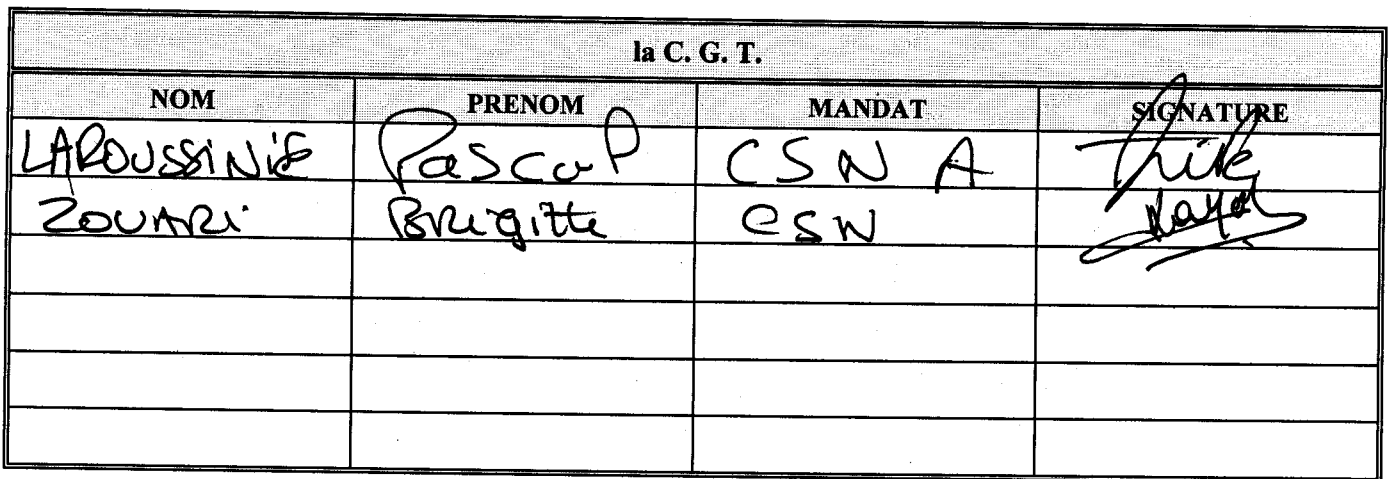 la C. G. T.
NOM PRENOM MANDAT SIGNATURE
LAROUSSINIE Pascal CSN A
ZOUARI Brigitte CSN